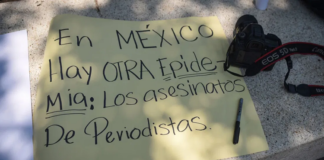 En MÉXICO
Hay OTRA Epide-
Mia: Los asesinatos
De Periodistas.
EOS 5D